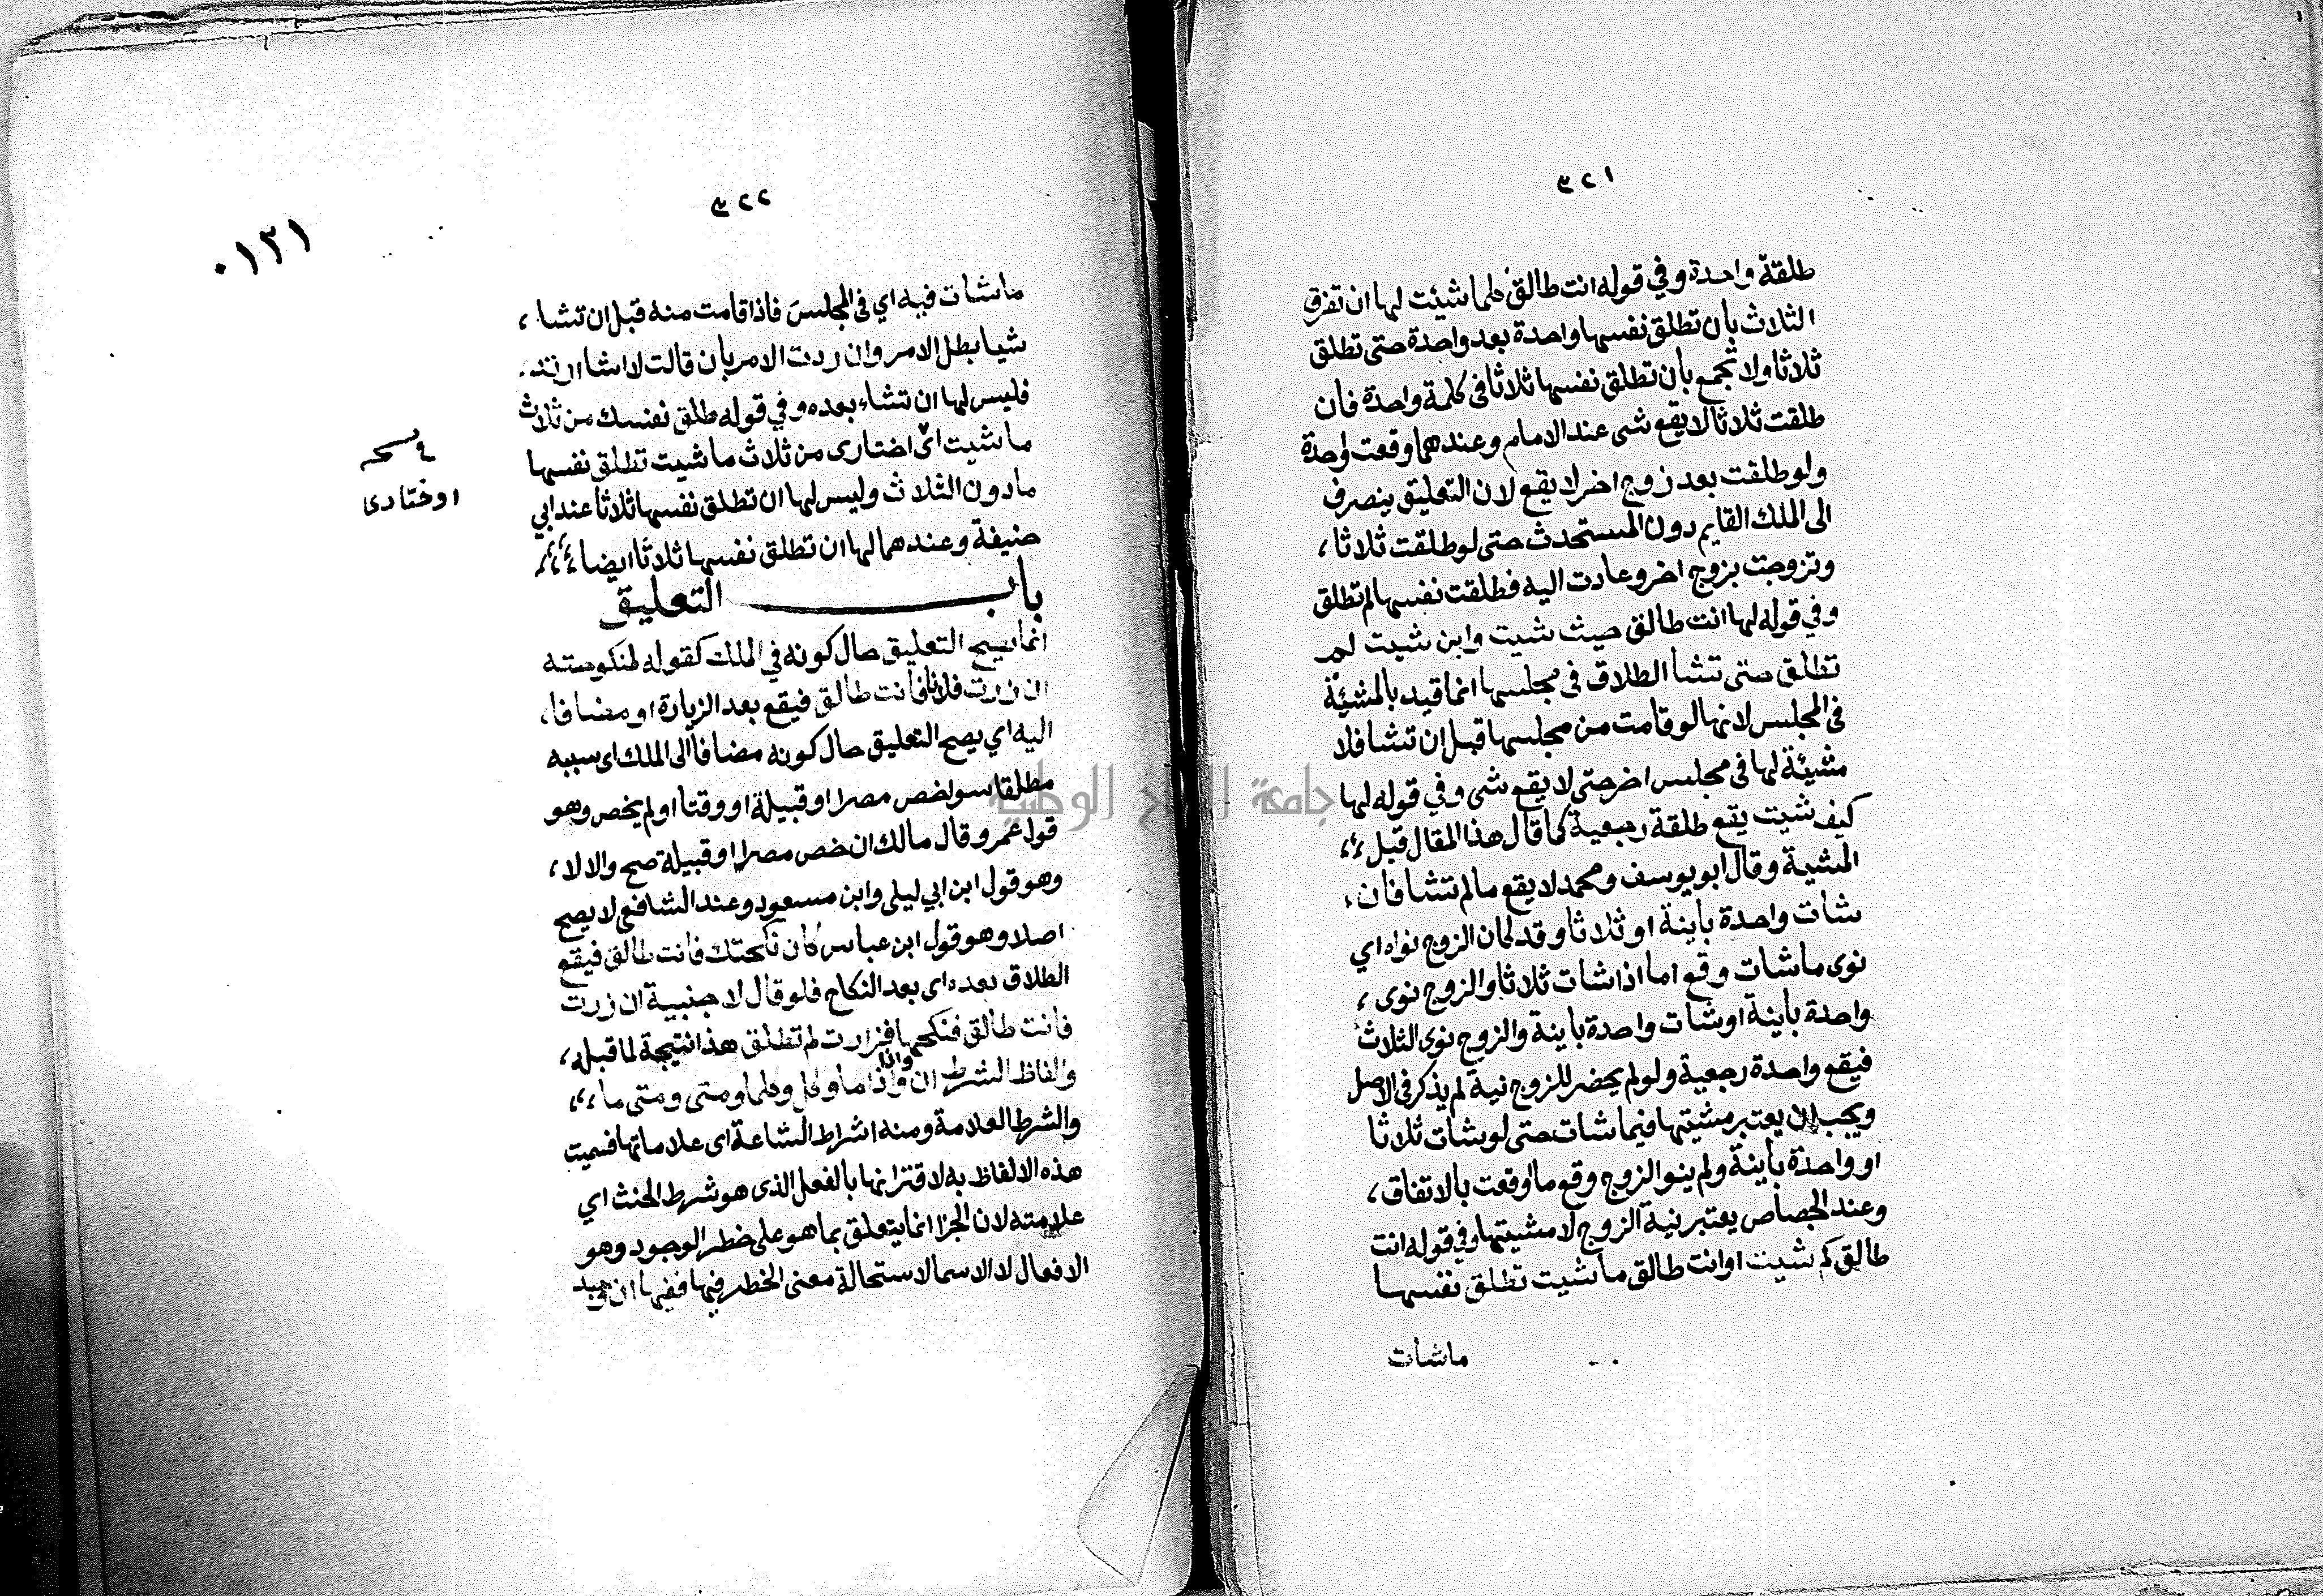 ٣٢١
طلقة واحدة وفي قوله انت طالق كلما شيئت لها ان تفرق
الثلاث بأن تطلق نفسها واحدة بعد واحدة حتى تطلق
ثلاثا ولا تجمع بأن تطلق نفسها ثلاثا في كلمة واحدة فأن
طلقت ثلاثا لا يقع شى عند الامام وعندهما وقعت واحدة
ولو طلقت بعد زوج اخر لا يقع لان التعليق ينصرف
الى الملك القايم دون المستحدث حتى لو طلقت ثلاثا ،
وتزوجت بزوج اخر وعادت اليه فطلقت نفسها لم تطلق
وفي قوله لها انت طالق حيث شيت واين شيت لم
تطلق حتى تشا الطلاق فى مجلسها انما قيد بالمشيئة
فى المجلس لانها لو قامت من مجلسها قبل ان تشا فلا
مشيئة لها فى مجلس اخر حتى لا يقع شى وفي قوله لها
كيف شيت يقع طلقة رجعية كما قال هذا المقال قبل ،،
المشية وقال ابو يوسف ومحمد لا يقع مالم تشا فان ،
شات واحدة بأينة او ثلاثا وقد كان الزوج نواه اي
نوى ماشات وقع اما اذا شات ثلاثا والزوج نوى ،
واحدة بأينة اوشات واحدة بأينة والزوج نوى الثلاث
فيقع واحدة رجعية ولو لم يحضر للزوج نية لم يذكر فى الاصل
ويجب ان يعتبر مشيتها فيما شات حتى لو شات ثلاثا
او واحدة بأينة ولم ينو الزوج وقع ما اوقعت بالاتفاق ،
وعند الجصاص يعتبر نية الزوج لا مشيتها وفي قوله انت
طالق كم شيت او انت طالق ماشيت تطلق نفسها
ماشأت
٣٢٢
٠١٢١
ماشات فيه اي فى المجلس فاذا قامت منه قبل ان تشا ،
شيا بطل الامر وان ردت الامر بأن قالت لا اشا
فليس لها ان تشاء بعده وفي قوله طلق نفسك من ثلاث
ماشيت اى اختارى من ثلاث ماشيت تطلق نفسها
مادون الثلاث وليس لها ان تطلق نفسها ثلاثا عند ابي
حنيفة وعندهما لها ان تطلق نفسها ثلاثا ايضا ،،،
اوختادى
باب التعليق
انما يصح التعليق حال كونه في الملك كقوله لمنكوحته
ان زرت فلانا فأنت طالق فيقع بعد الزيارة او مضافا ،
اليه اي يصح التعليق حال كونه مضافا الى الملك اى سببه
مطلقا سواخص مصرا او قبيلة او وقتا او لم يخص وهو
قول عمر وقال مالك ان خص مصرا او قبيلة صح والا لا ،
وهو قول ابن ابي ليلى وابن مسعود وعند الشافعى لا يصح
اصلا وهو قول ابن عباس كان نكحتك فانت طالق فيقع
الطلاق بعده اى بعد النكاح فلو قال لا جنبية ان زرت
فانت طالق فنكحها فزارت لم تطلق هذا نتيجة لما قبله ،
والفاظ الشرط ان واذا واذا ما وكل وكلما ومتى ومتى ما ،،
والشرط العلامة ومنه اشراط الساعة اى علاماتها فسميت
هذه الالفاظ به لاقترانها بالفعل الذى هو شرط الحنث اي
علامته لان الجزا انما يتعلق بما هو على خطر الوجود وهو
الافعال لا الاسما لاستحالة معنى الخطر فيها ففيها ان وجد
جامعة النجاح الوطنية